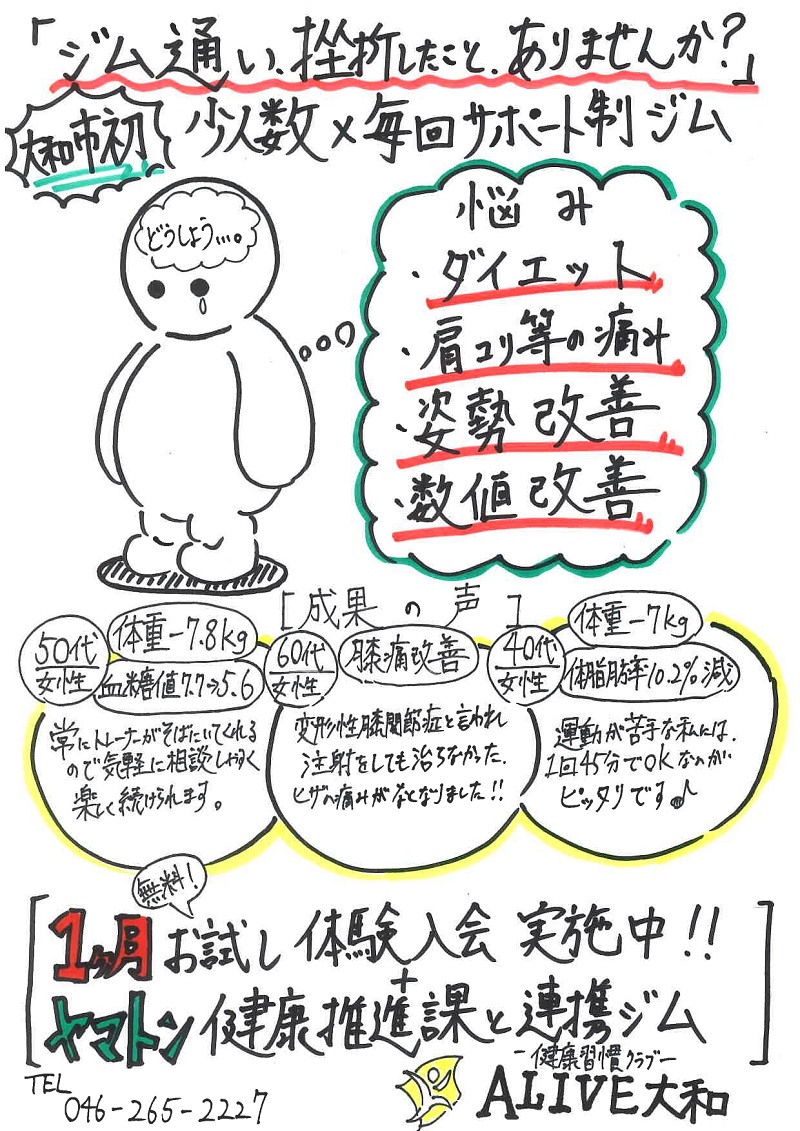 「ジム通い、挫折したこと、ありませんか?」
大和市初
少人数×毎回サポート制ジム
どうしよう…。
悩み
・ダイエット
・肩コリ等の痛み
・姿勢改善
・数値改善
[成果の声]
50代
女性
体重-7.8kg
血糖値7.7→5.6
常にトレーナーがそばにいてくれる
ので気軽に相談しやすく
楽しく続けられます。
60代
女性
膝痛改善
変形性膝関節症と言われ
注射をしても治らなかった、
ヒザの痛みがなくなりました!!
40代
女性
体重-7kg
体脂肪率10.2%減
運動が苦手な私には、
1回45分でOKなのが
ピッタリです♪
無料!
1ヶ月お試し体験入会実施中!!
ヤマトン健康推進課と連携ジム
TEL
046-265-2227
-健康習慣クラブ-
ALIVE大和